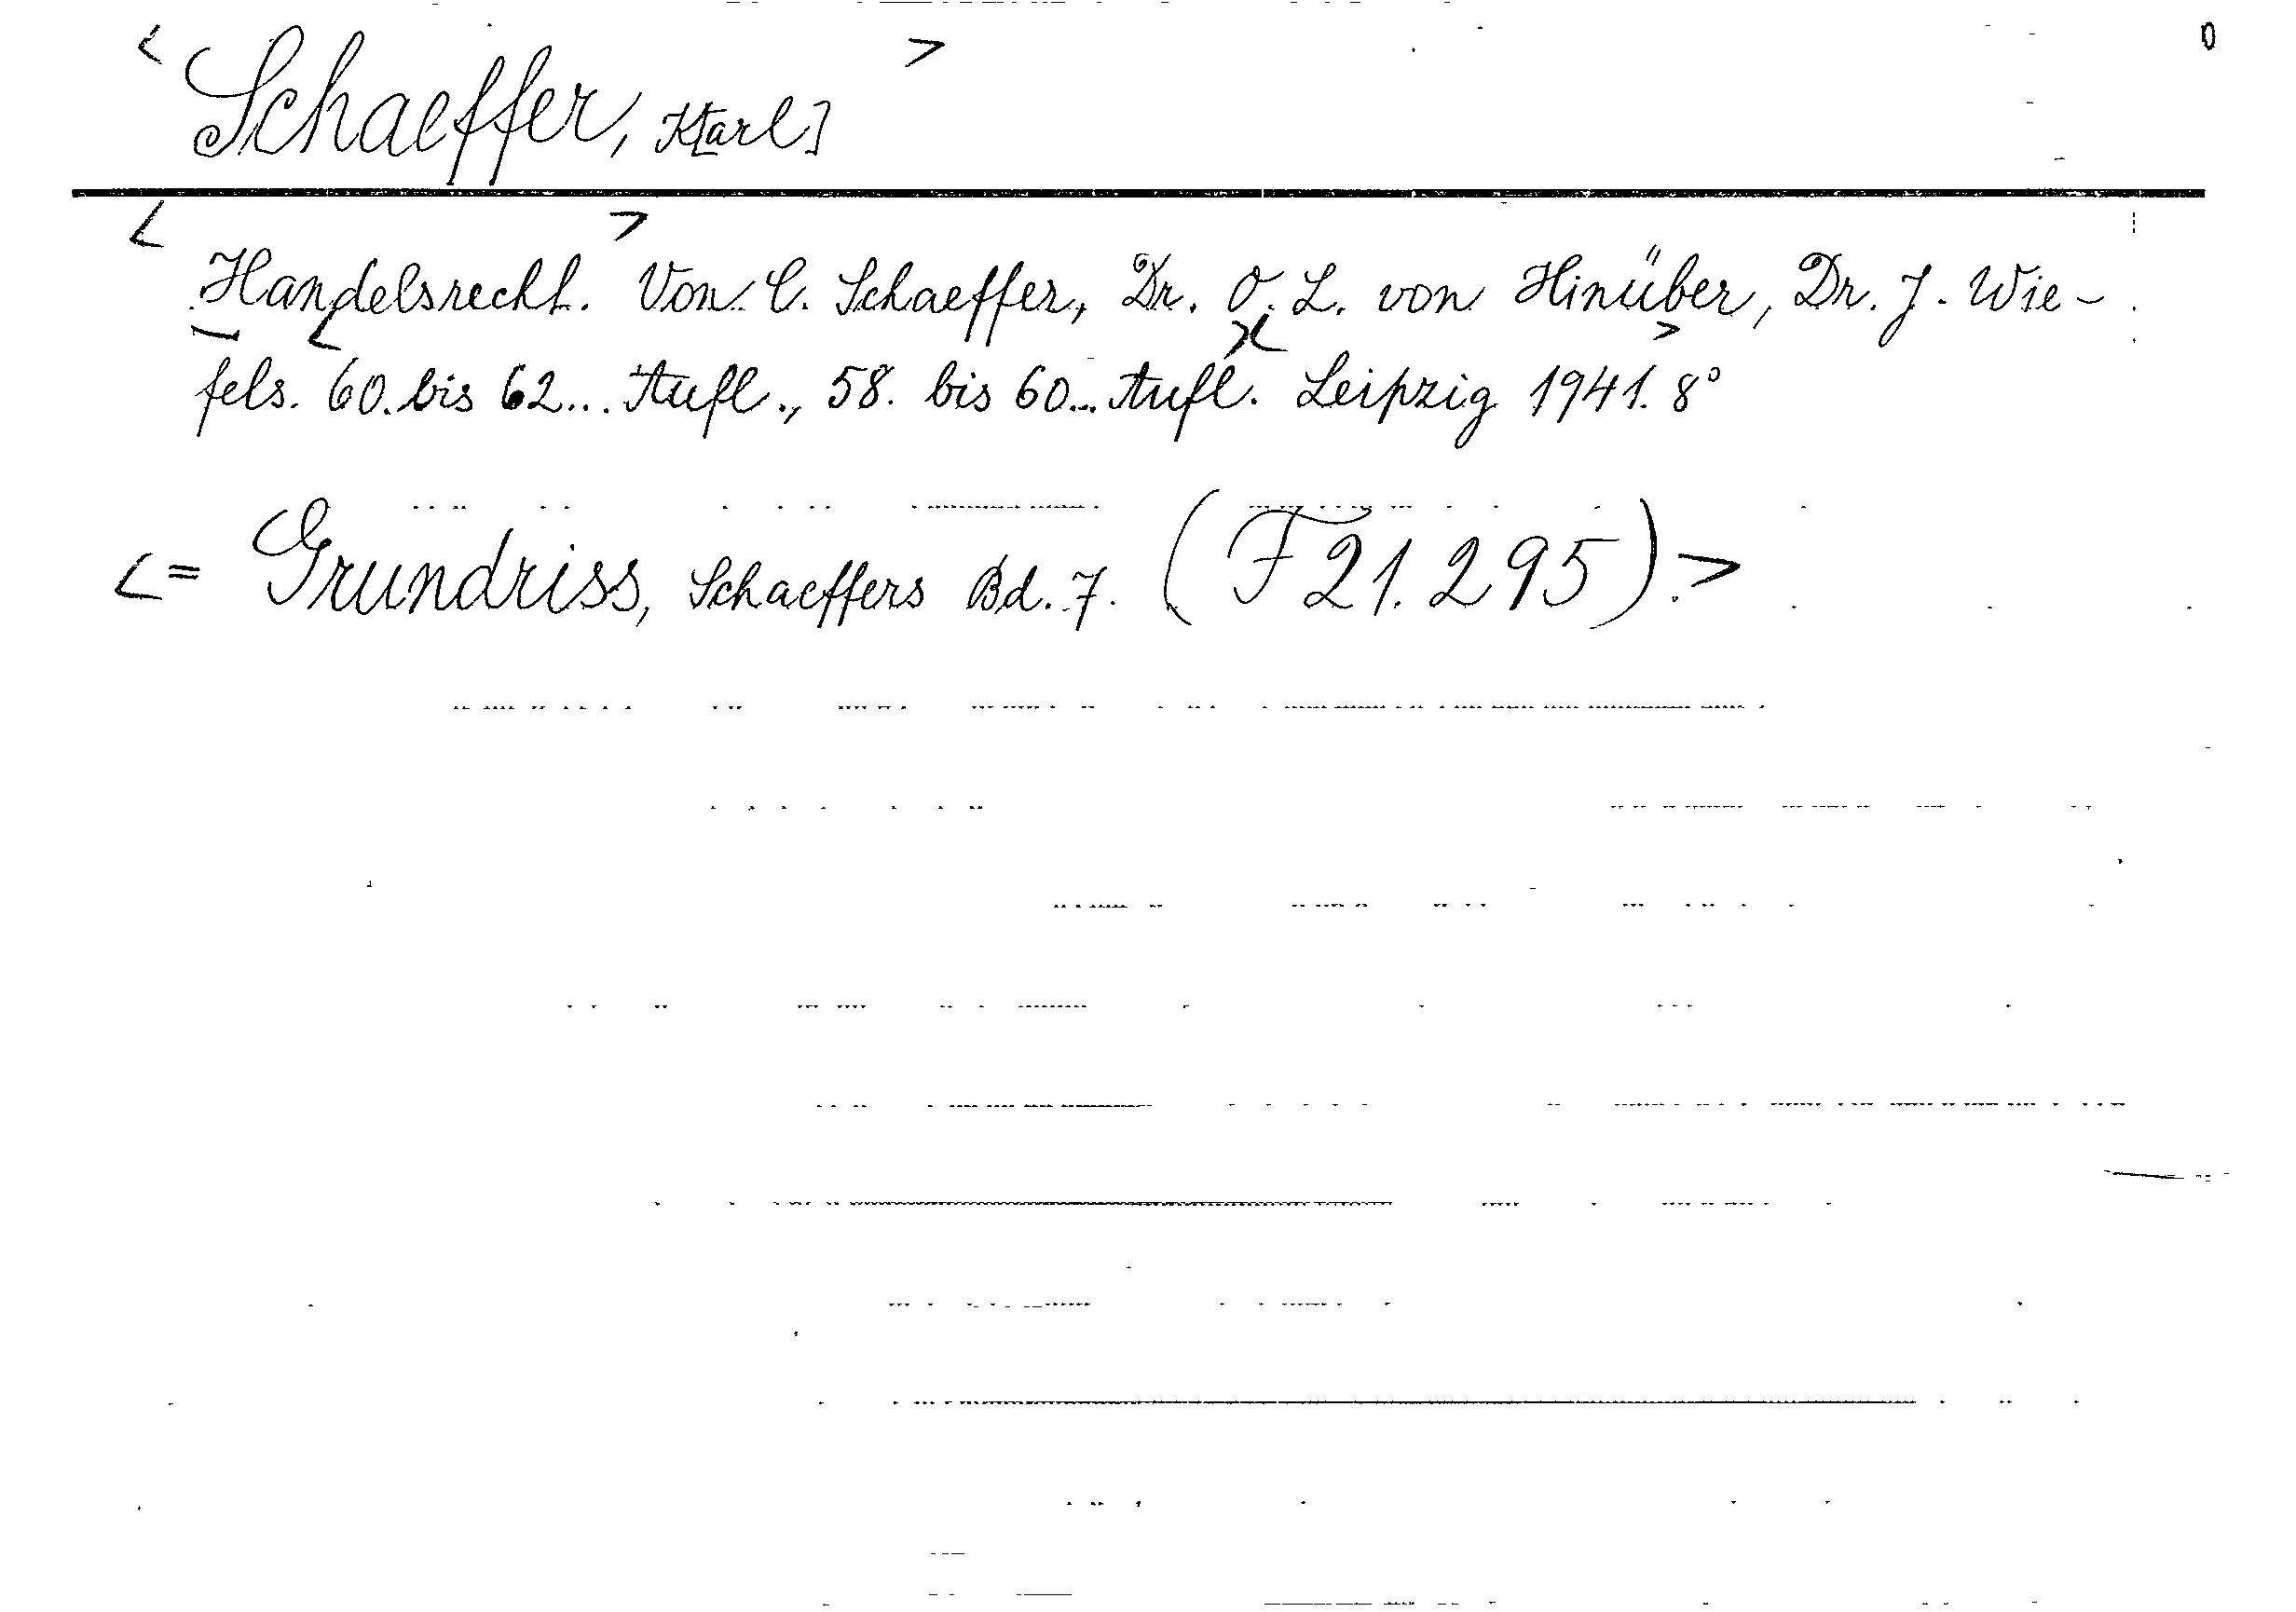 < Schaeffer, K[arl] > 0
< Handelsrecht. > Von C. Schaeffer, Dr. O. L. von Hinüber, Dr. J. Wie-
fels. < 60. bis 62... Aufl., 58. bis 60... Aufl. >< Leipzig 1941. > 8°
<= Grundriss, Schaeffers Bd. 7. (F 21. 295).>